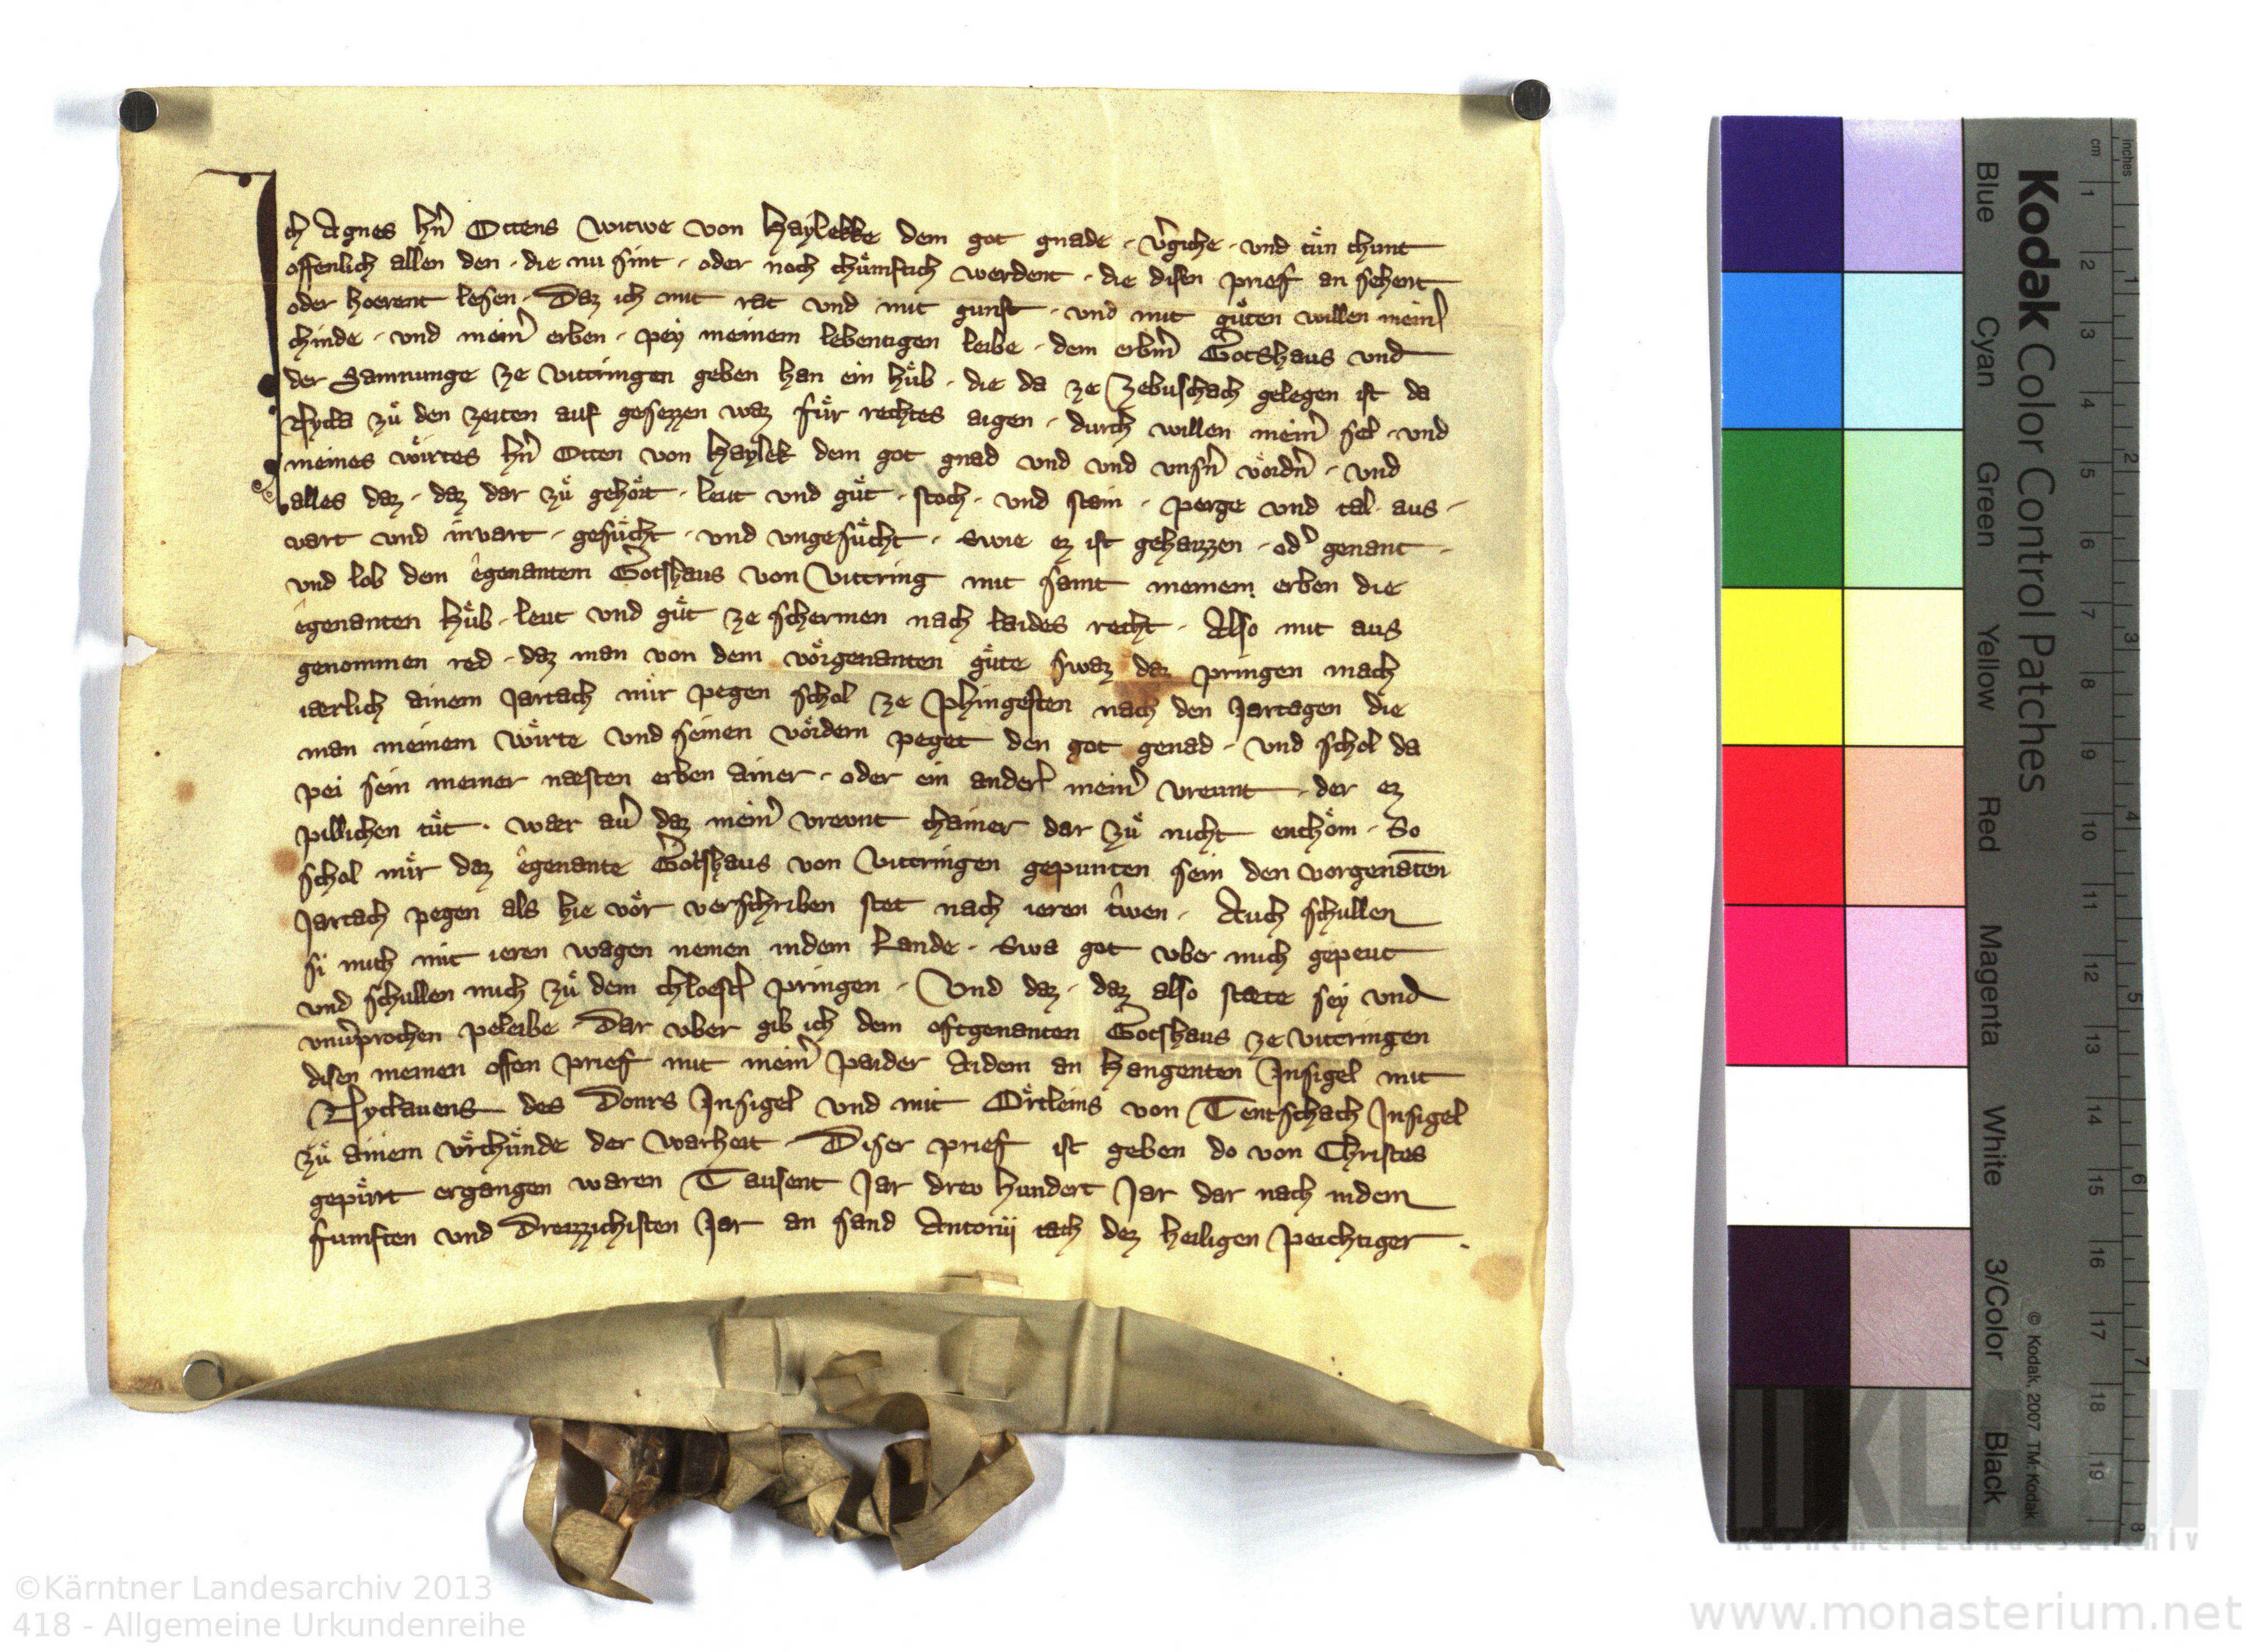 Ich Agnes hñ Ottens witwe von Haylekke dem got gnade · v̂giche · und tůn chunt
offenlich allen den · die nu sint · oder noch chůmftich werdent · die disen prief an sehent
oder hoerent lesen · Daz ich mit rat und mit gunst · und mit gůten willen mein̂
chinde · und mein̂ erben · pey meinem lebentigen leibe · dem erbm̂ Gotshaus und
der Samnunge ze vittringen geben han ein hůb · die da ze Zebuschach gelegen ist da
zů den zeiten auf gesezzen waz fůr rechtes aigen · durch willen mein̂ sel · und
meines wirtes hñ Otten von Haylek dem got gnad und und vnsn̂ vordn̂ · und
alles daz · daz dar zů gehört · leut und gůt · stoch · und stain · perge und tal · aus ·
vart und invart · gesůcht · und ungesůcht · Swie ez ist gehaizzen · od̂ genant ·
und lob dem êgenantem Gotshaus von Vittring mit samt meinem erben die
êgenanten hůb · leut und gůt ze schermen nach landes recht · Also mit aus
genommen red · daz man von dem vörgenanten gůte swaz daz pringen mach
iaerlich ainem Jartach mir pegen schol ze Phingesten nach den Jartagen die
man meinem wirte und seinen vördern peget den got genad · und schol da
pei sein meiner naesten erben ainer · oder ein ander̂ mein̂ vreunt · der ez
pillichen tůt · waer aû daz mein̂ vreunt chainer dar zů nicht enchöm · So
schol mir daz êgenante Gotshaus von vittringen gepunten sein den vorgenāten
Jartach pegen als hie vör verschriben stet nach ieren triwen · Auch schullen
si mich mit ieren wagen nemen indem Lande · Swa got vber mich gepeut
und schullen mich zů dem chloest̂ pringen · Und daz · daz also staete sey und
unv̂prochen peleibe · Dar vber gib ich dem oftgenanten Gotshaus ze vittringen
disen meinen offen prief mit mein̂ paider Aidem an hangenten Insigel mit
Nyclauens des Donrs Insigel und mit Örtleins von Tentschach Insigel
zů ainem vrchůnde der warheit · Diser prief ist geben do von Christes
gepůrt ergangen waren Tausent Jar drev hundert Jar dar nach indem
funften und Dreizzichisten Jar an sand Antonij tach dez heiligen Peichtiger ·
Kodak Color Control Patches
© Kodak, 2007 TM: Kodak
Blue Cyan Green Yellow Red Magenta White 3/Color Black
cm 1 2 3 4 5 6 7 8 9 10 11 12 13 14 15 16 17 18 19
inches 1 2 3 4 5 6 7 8
Kärntner Landesarchiv
©Kärntner Landesarchiv 2013
418 - Allgemeine Urkundenreihe
www.monasterium.net